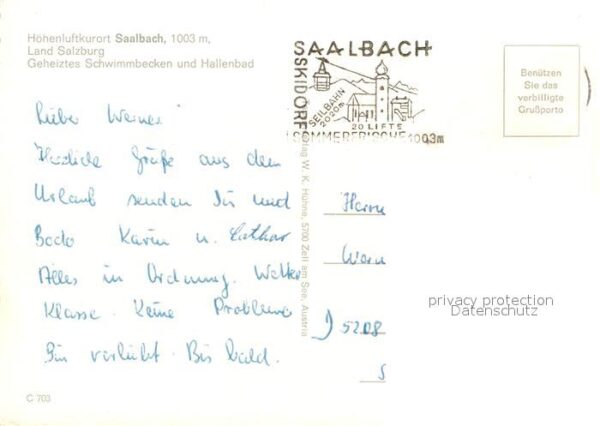 Höhenluftkurort Saalbach, 1003 m,
Land Salzburg
Geheiztes Schwimmbecken und Hallenbad
SAALBACH
SKIDORF
SEILBAHN
2020m
20 LIFTE
SOMMERFRISCHE 1003m
Benützen
Sie das
verbilligte
Grußporto
Lieber Werner!
Herzliche Grüße aus dem
Urlaub senden Dir und
Bodo Karin u. Lothar
Alles in Ordnung. Wetter
Klasse. Keine Probleme
Bin verliebt. Bis bald.
Herrn
Wern
D 5208
S
Verlag W. K. Hühne, 5700 Zell am See, Austria
privacy protection
Datenschutz
C 703